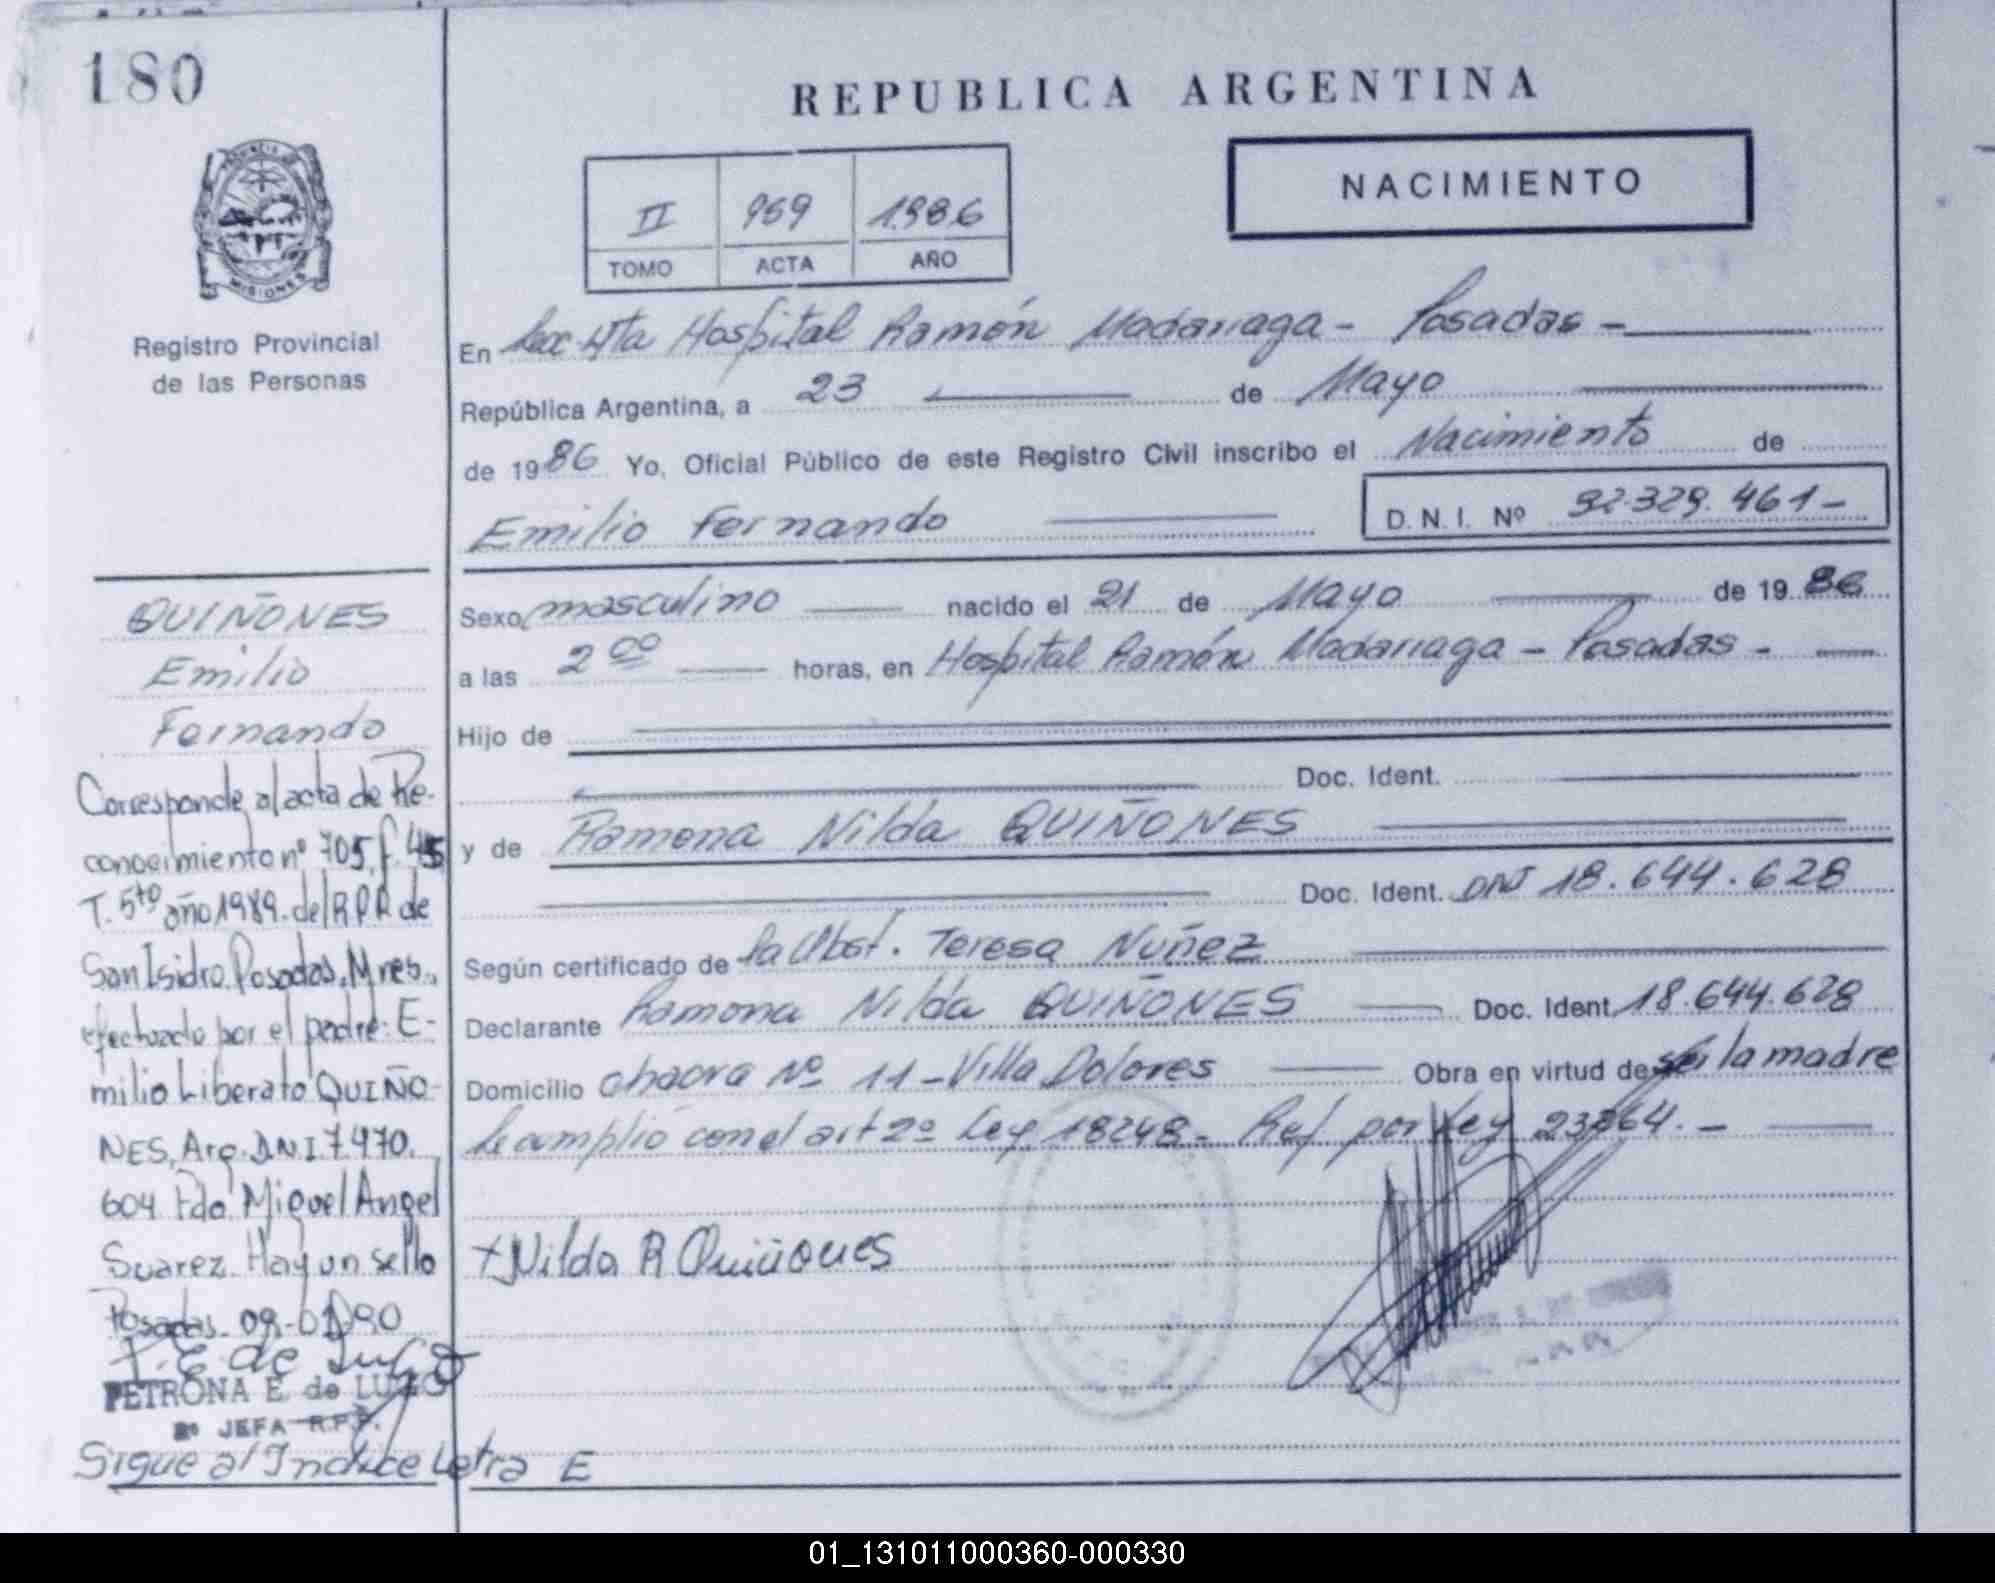 180
PROVINCIA DE
MISIONES
Registro Provincial
de las Personas
QUIÑONES
Emilio
Fernando
Corresponde al acta de Re-
conocimiento nº 705, f. 45
T. 5to año 1989. del R.P.P. de
San Isidro. Posadas. Mnes.,
efectuado por el padre: E-
milio Liberato QUIÑO-
NES, Arg. D.N.I 7.470.
604. Fdo. Miguel Angel
Suarez. Hay un sello
Posadas. 09-01-90
P. E de Lugo
PETRONA E de LUGO
JEFA R.P.P.
Sigue al Indice Letra E
REPUBLICA ARGENTINA
NACIMIENTO
II 959 1.986
TOMO ACTA AÑO
En Secc 4ta Hospital Ramón Madariaga - Posadas -
República Argentina, a 23 de Mayo
de 1986 Yo, Oficial Público de este Registro Civil inscribo el Nacimiento de
Emilio Fernando D.N.I. Nº 32.329.461-
Sexo masculino nacido el 21 de Mayo de 1986
a las 2 00 horas, en Hospital Ramón Madariaga - Posadas -
Hijo de
Doc. Ident.
y de Ramona Nilda QUIÑONES
Doc. Ident. DNI 18.644.628
Según certificado de la Obst. Teresa Nuñez
Declarante Ramona Nilda QUIÑONES Doc. Ident. 18.644.628
Domicilio chacra Nº 11 - Villa Dolores Obra en virtud de ser la madre
Se cumplió con el art 2º Ley 18248- Ref por Ley 23264. -
+ Nilda R Quiñones
01_131011000360-000330